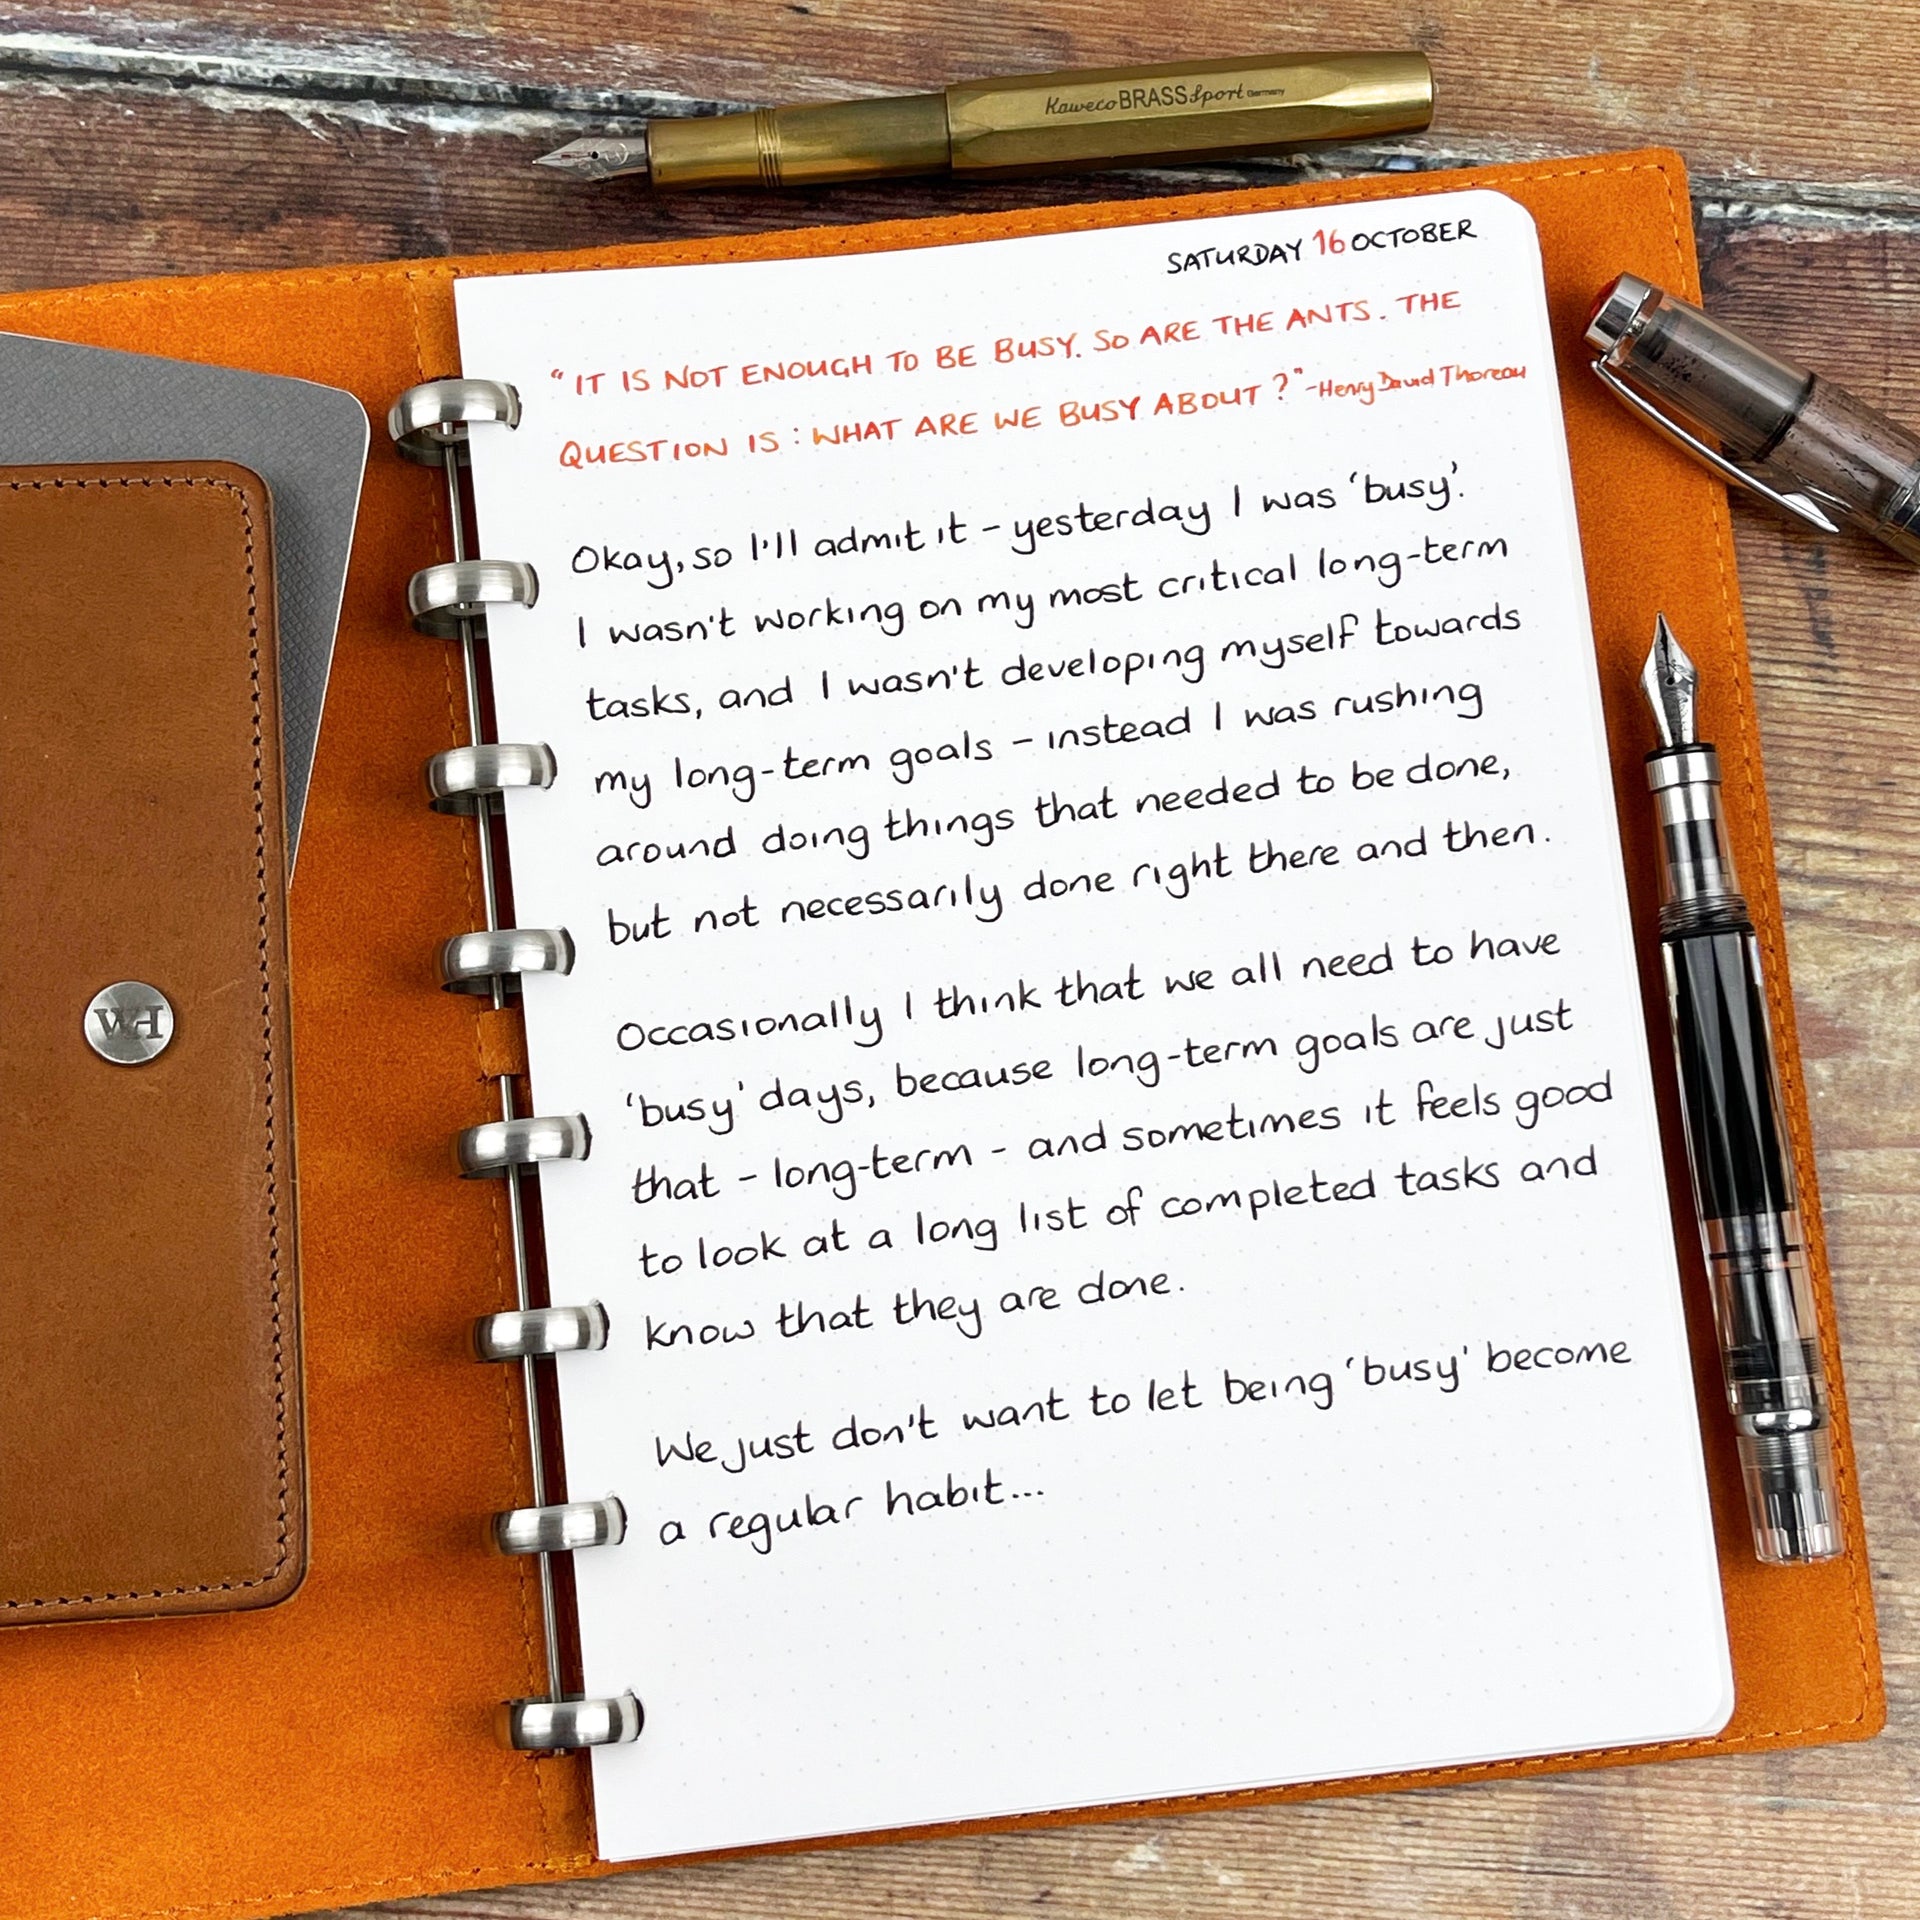 Kaweco BRASS Sport Germany
SATURDAY 16 OCTOBER
“IT IS NOT ENOUGH TO BE BUSY. SO ARE THE ANTS. THE
QUESTION IS: WHAT ARE WE BUSY ABOUT?” - Henry David Thoreau
Okay, so I'll admit it - yesterday I was ‘busy’.
I wasn't working on my most critical long-term
tasks, and I wasn't developing myself towards
my long-term goals - instead I was rushing
around doing things that needed to be done,
but not necessarily done right there and then.
Occasionally I think that we all need to have
‘busy’ days, because long-term goals are just
that - long-term - and sometimes it feels good
to look at a long list of completed tasks and
know that they are done.
We just don't want to let being ‘busy’ become
a regular habit...
WH